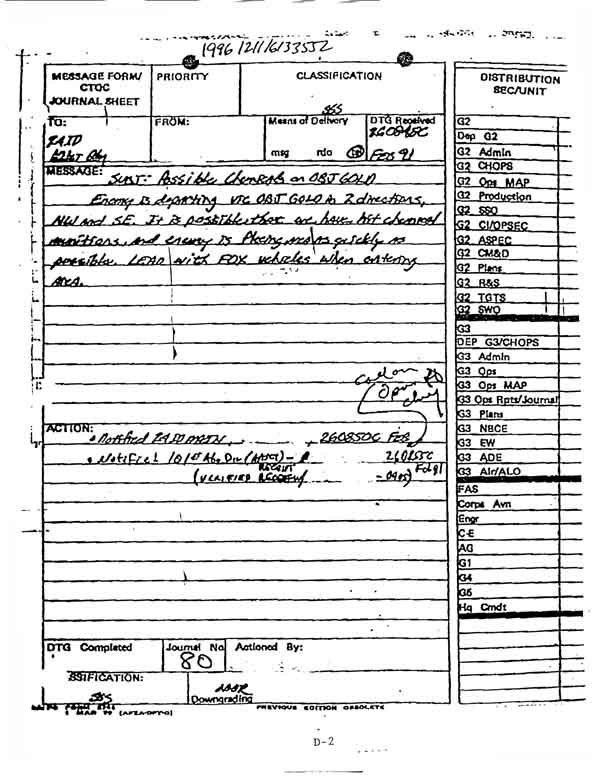 1996 1211 6133552
MESSAGE FORM/
CTOC
JOURNAL SHEET
PRIORITY
CLASSIFICATION
TO:
24 ID
FROM:
Means of Delivery
msg rdo
DTG Received
260845C
Feb 91
MESSAGE: Subj: Possible Chemicals on OBJ GOLD
Enemy is departing vic OBJ GOLD in 2 directions,
NW and SE. It is possible that we have hit chemical
munitions, and enemy is fleeing area as quickly as
possible. LEAD with FOX vehicles when entering
Area.
Opn
ACTION:
• Notified 24 ID MAIN, 260850C Feb
• Notified 101st Abn Div 260855C
Feb 91
(VERIFIED RECEIPT - 0905)
DTG Completed
Journal No
80
Actioned By:
SSIFICATION:
Downgrading
1 MAR 79 (AFZA-DPT-O)
PREVIOUS EDITION OBSOLETE
DISTRIBUTION
SEC/UNIT
G2
Dep G2
G2 Admin
G2 CHOPS
G2 Ops MAP
G2 Production
G2 SSO
G2 CI/OPSEC
G2 ASPEC
G2 CM&D
G2 Plans
G2 R&S
G2 TGTS
G2 SWO
G3
DEP G3/CHOPS
G3 Admin
G3 Ops
G3 Ops MAP
G3 Ops Rpts/Journal
G3 Plans
G3 NBCE
G3 EW
G3 ADE
G3 Air/ALO
FAS
Corps Avn
Engr
C-E
AG
G1
G4
G5
Hq Cmdt
D-2